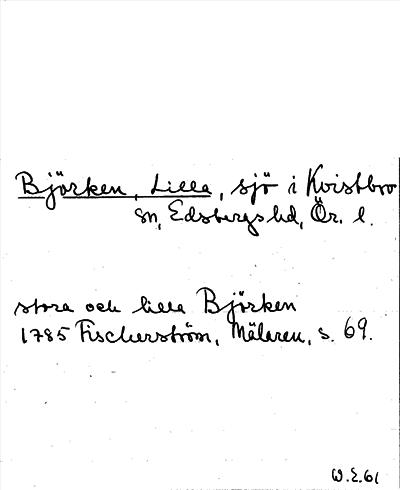 Björken, Lilla, sjö i Kvistbro
sn, Edsbergs hd, Ör. l.
stora och lilla Björken
1785 Fischerström, Mälaren, s. 69.
W.E.61